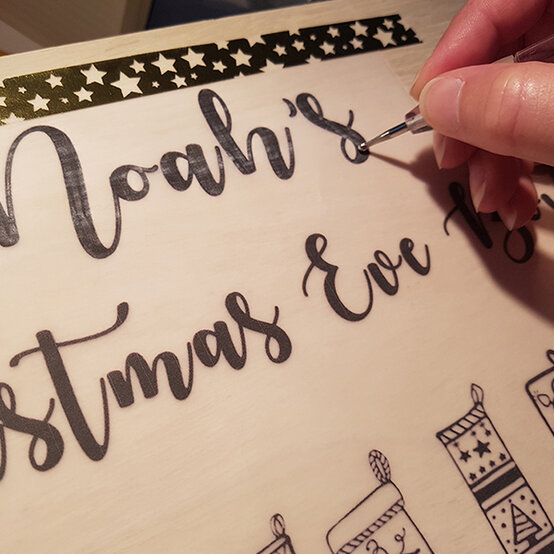 Noah's
stmas Eve